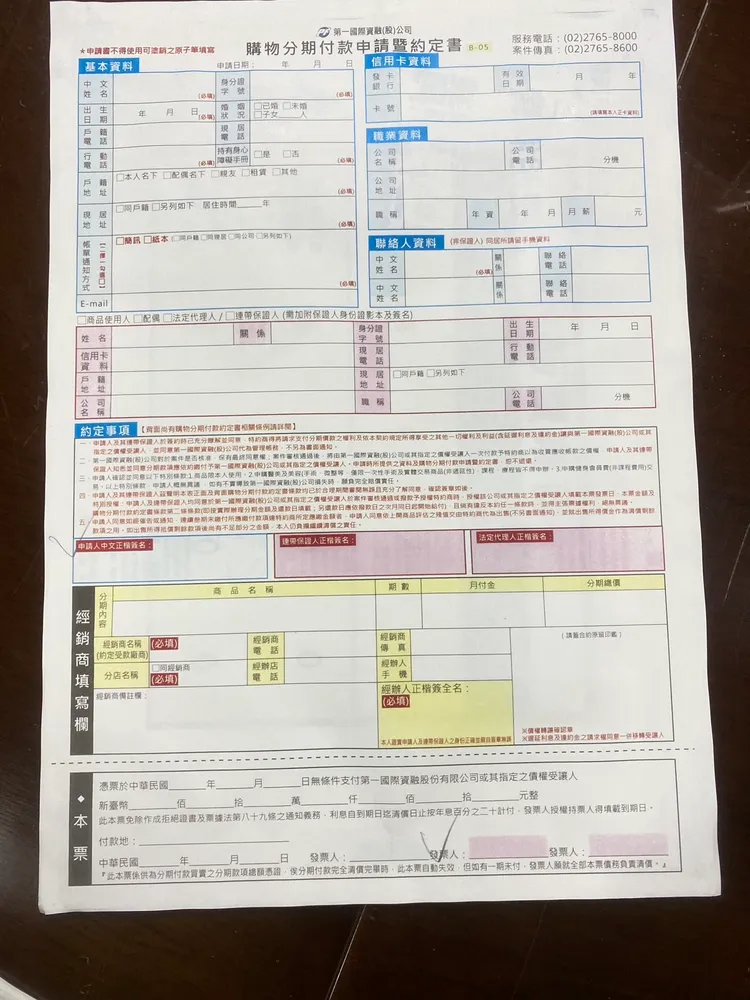 第一國際資融(股)公司
購物分期付款申請暨約定書 B-05
服務電話：(02)2765-8000
案件傳真：(02)2765-8600
*申請書不得使用可塗銷之原子筆填寫
基本資料
申請日期： 年 月 日
中文姓名 (必填) 身分證字號 (必填)
出生日期 年 月 日 (必填) 婚姻狀況 □已婚 □未婚 □子女___人
戶籍電話 現居電話
行動電話 (必填) 持有身心障礙手冊 □是 □否 (必填)
戶籍地址 □本人名下 □配偶名下 □親友 □租賃 □其他 (必填)
現居地址 □同戶籍 □另列如下 居住時間____年 (必填)
帳單通知方式 □簡訊 □紙本 (□同戶籍 □同現居 □同公司 □另列如下) (必填)
E-mail
信用卡資料
發卡銀行 有效日期 月 年
卡號 (請填寫本人正卡資料)
職業資料
公司名稱 公司電話 分機
公司地址
職稱 年資 年 月 月薪 元
聯絡人資料 (非保證人) 同居所請留手機資料
中文姓名 (必填) 關係 聯絡電話
中文姓名 關係 聯絡電話
□商品使用人 □配偶 □法定代理人 / □連帶保證人 (需加附保證人身份證影本及簽名)
姓名 關係 身分證字號 出生日期 年 月 日
信用卡資料 現居電話 行動電話
戶籍地址 現居地址 □同戶籍 □另列如下
公司名稱 職稱 公司電話 分機
約定事項 【背面尚有購物分期付款約定書相關條例請詳閱】
申請人中文正楷簽名：
連帶保證人正楷簽名：
法定代理人正楷簽名：
經銷商填寫欄
分期內容 商品名稱 期數 月付金 分期總價
經銷商名稱(約定受款廠商) (必填) 經銷商電話 經銷商傳真
分店名稱 □同經銷商 (必填) 經辦店電話 經辦人手機
(請蓋合約原留印鑑)
經銷商備註欄：
經辦人正楷簽全名：
(必填)
本人證實申請人及連帶保證人之身份正確並親自簽章無誤
※債權轉讓確認章
※遲延利息及違約金之請求權同意一併移轉受讓人
◆本票
憑票於中華民國____年____月____日無條件支付第一國際資融股份有限公司或其指定之債權受讓人
新臺幣____佰____拾____萬____仟____佰____拾____元整
此本票免除作成拒絕證書及票據法第八十九條之通知義務，利息自到期日迄清償日止按年息百分之二十計付，發票人授權持票人得填載到期日。
付款地：
中華民國____年____月____日 發票人：____ 發票人：____ 發票人：____
『此本票係供為分期付款買賣之分期款項總額憑證，俟分期付款完全清償完畢時，此本票自動失效，但如有一期未付，發票人願就全部本票債務負責清償。』